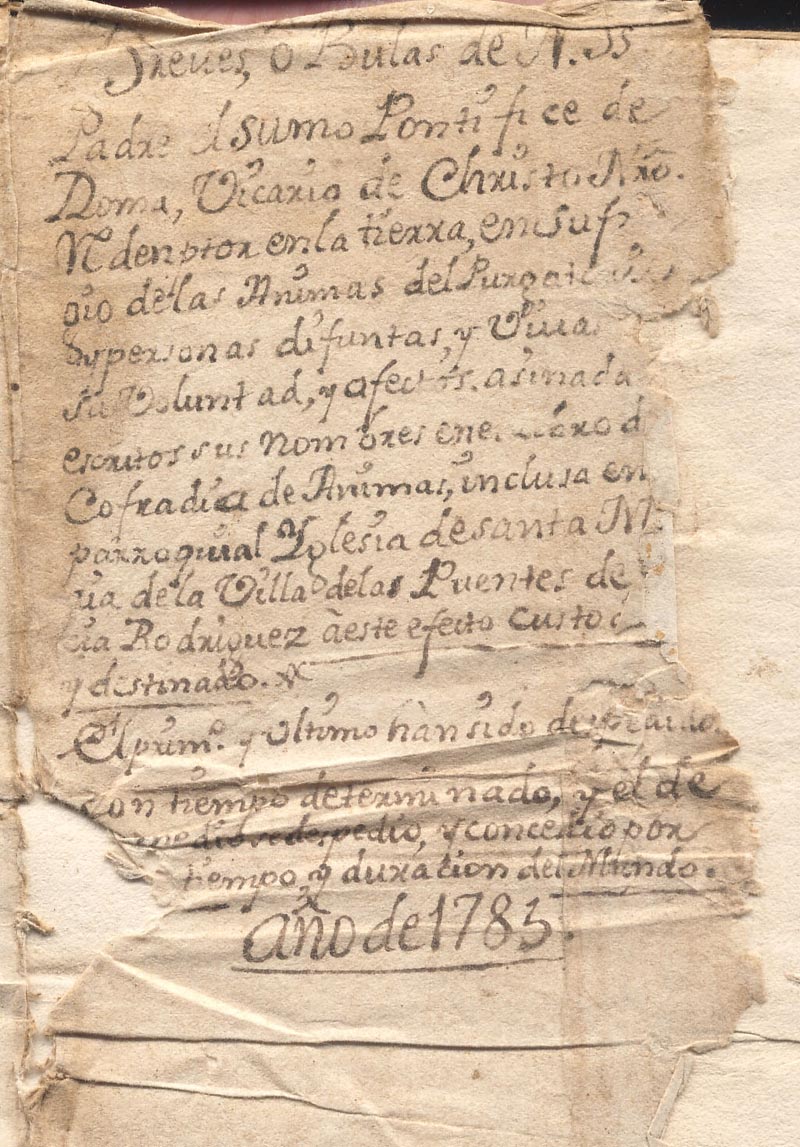 Breves, ó Bulas de N. SS
Padre el sumo Pontifice de
Roma, Vicario de Christo Nrõ.
Rdenptor en la tierra, en suf
gio de las Animas del Purgatorio
y personas difuntas, y Vivas
sa Voluntad, y afectos. asinada
escritos sus Nombres en el Libro d
Cofradia de Animas, inclusa en
parroquial Yglesia de santa M
ria de la Villa de las Puentes de
cia Rodriguez à este efecto custo
y destinado.
El prim.º y Ultimo hàn sido despedido
con tiempo determinado, y el de
medio se despedio, y concedio por
tiempo, y duracion del Mundo.
año de 1785.